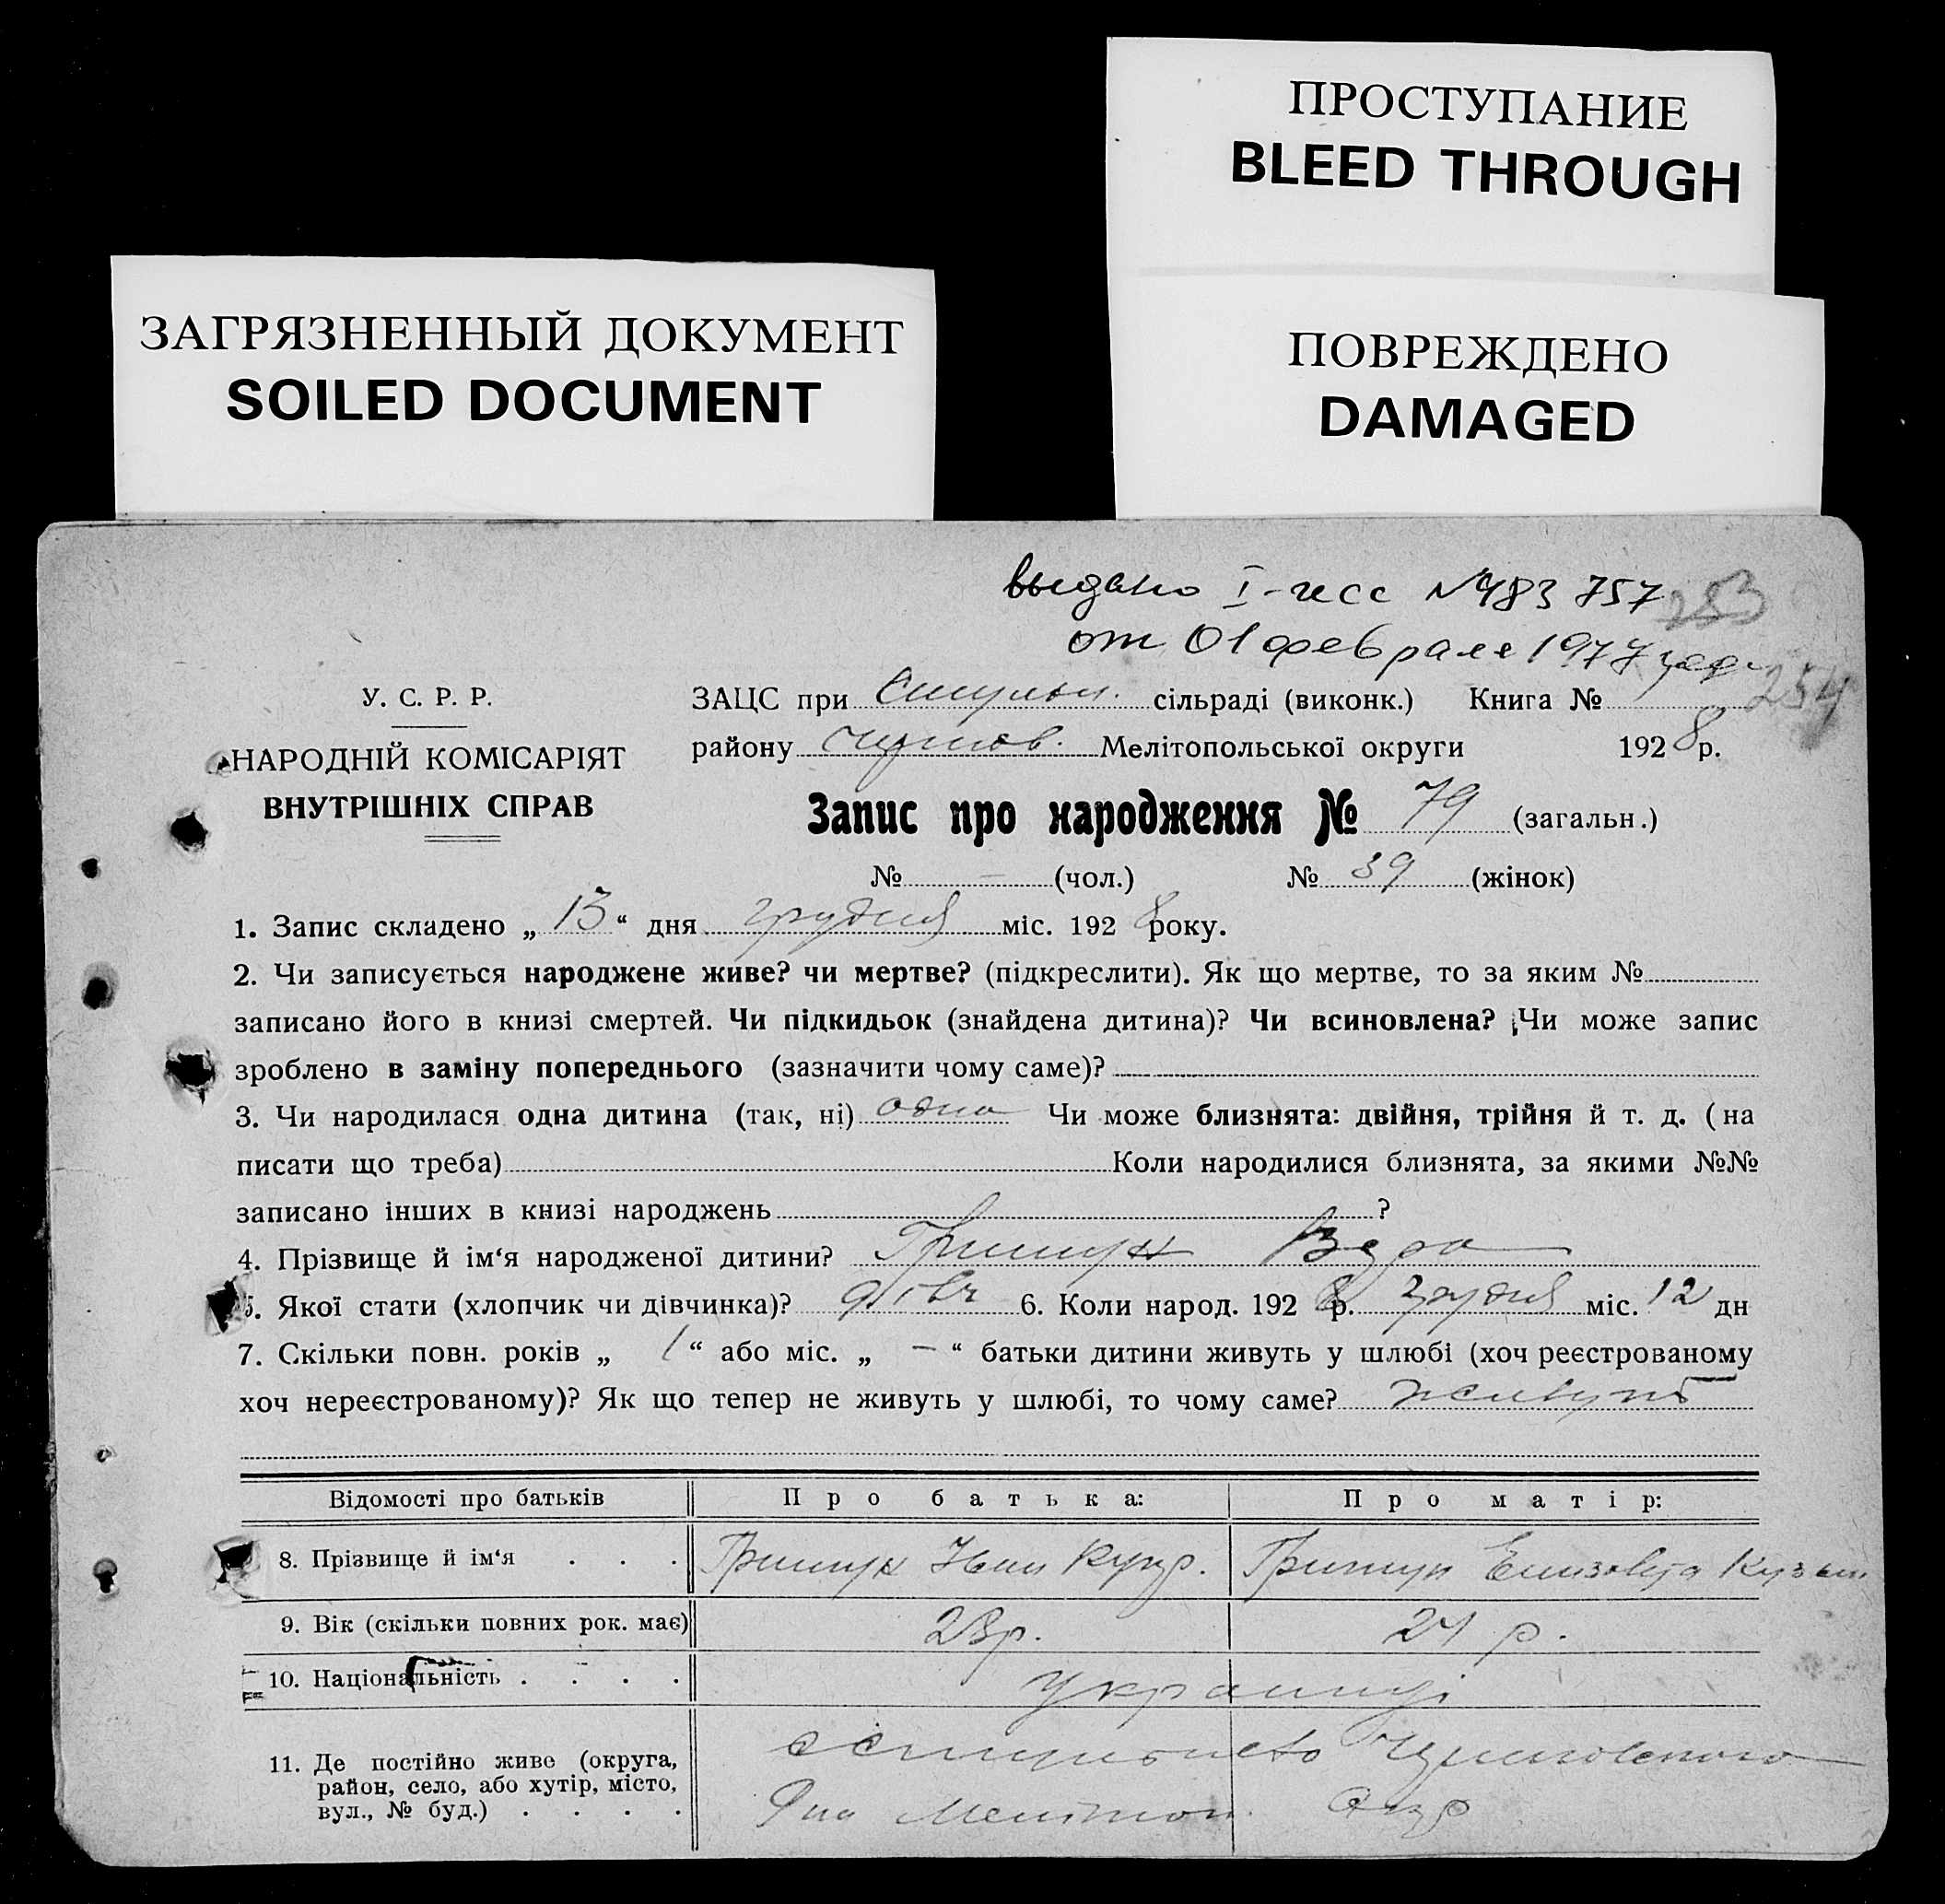 ПРОСТУПАНИЕ
BLEED THROUGH
ЗАГРЯЗНЕННЫЙ ДОКУМЕНТ
SOILED DOCUMENT
ПОВРЕЖДЕНО
DAMAGED
выдано I- № 483 757
253
от 01 февраля 1977
254
У. С. Р. Р.
НАРОДНІЙ КОМІСАРІЯТ
ВНУТРІШНІХ СПРАВ
ЗАЦС при сільраді (виконк.) Книга №
району Мелітопольської округи 1928 р.
Запис про народження № 79 (загальн.)
№ — (чол.) № 39 (жінок)
1. Запис складено „ 13 “ дня грудня міс. 1928 року.
2. Чи записується народжене живе? чи мертве? (підкреслити). Як що мертве, то за яким №
записано його в книзі смертей. Чи підкидьок (знайдена дитина)? Чи всиновлена? Чи може запис
зроблено в заміну попереднього (зазначити чому саме)?
3. Чи народилася одна дитина (так, ні) одна Чи може близнята: двійня, трійня й т. д. (на
писати що треба) Коли народилися близнята, за якими №№
записано інших в книзі народжень ?
4. Прізвище й ім‘я народженої дитини? Грищук Вера
5. Якої стати (хлопчик чи дівчинка)? дівч 6. Коли народ. 1928 р. грудня міс. 12 дн
7. Скільки повн. років „ 1 “ або міс. „ — “ батьки дитини живуть у шлюбі (хоч реєстрованому
хоч нереєстрованому)? Як що тепер не живуть у шлюбі, то чому саме? живуть
Відомості про батьків Про батька: Про матір:
8. Прізвище й ім‘я . . . Грищук Іван Грищук Елизавета Кузьм
9. Вік (скільки повних рок. має) 28 р. 24 р.
10. Національність . . . . Украинці
11. Де постійно живе (округа,
район, село, або хутір, місто,
вул., № буд.) . . . . Мелітоп. Окр